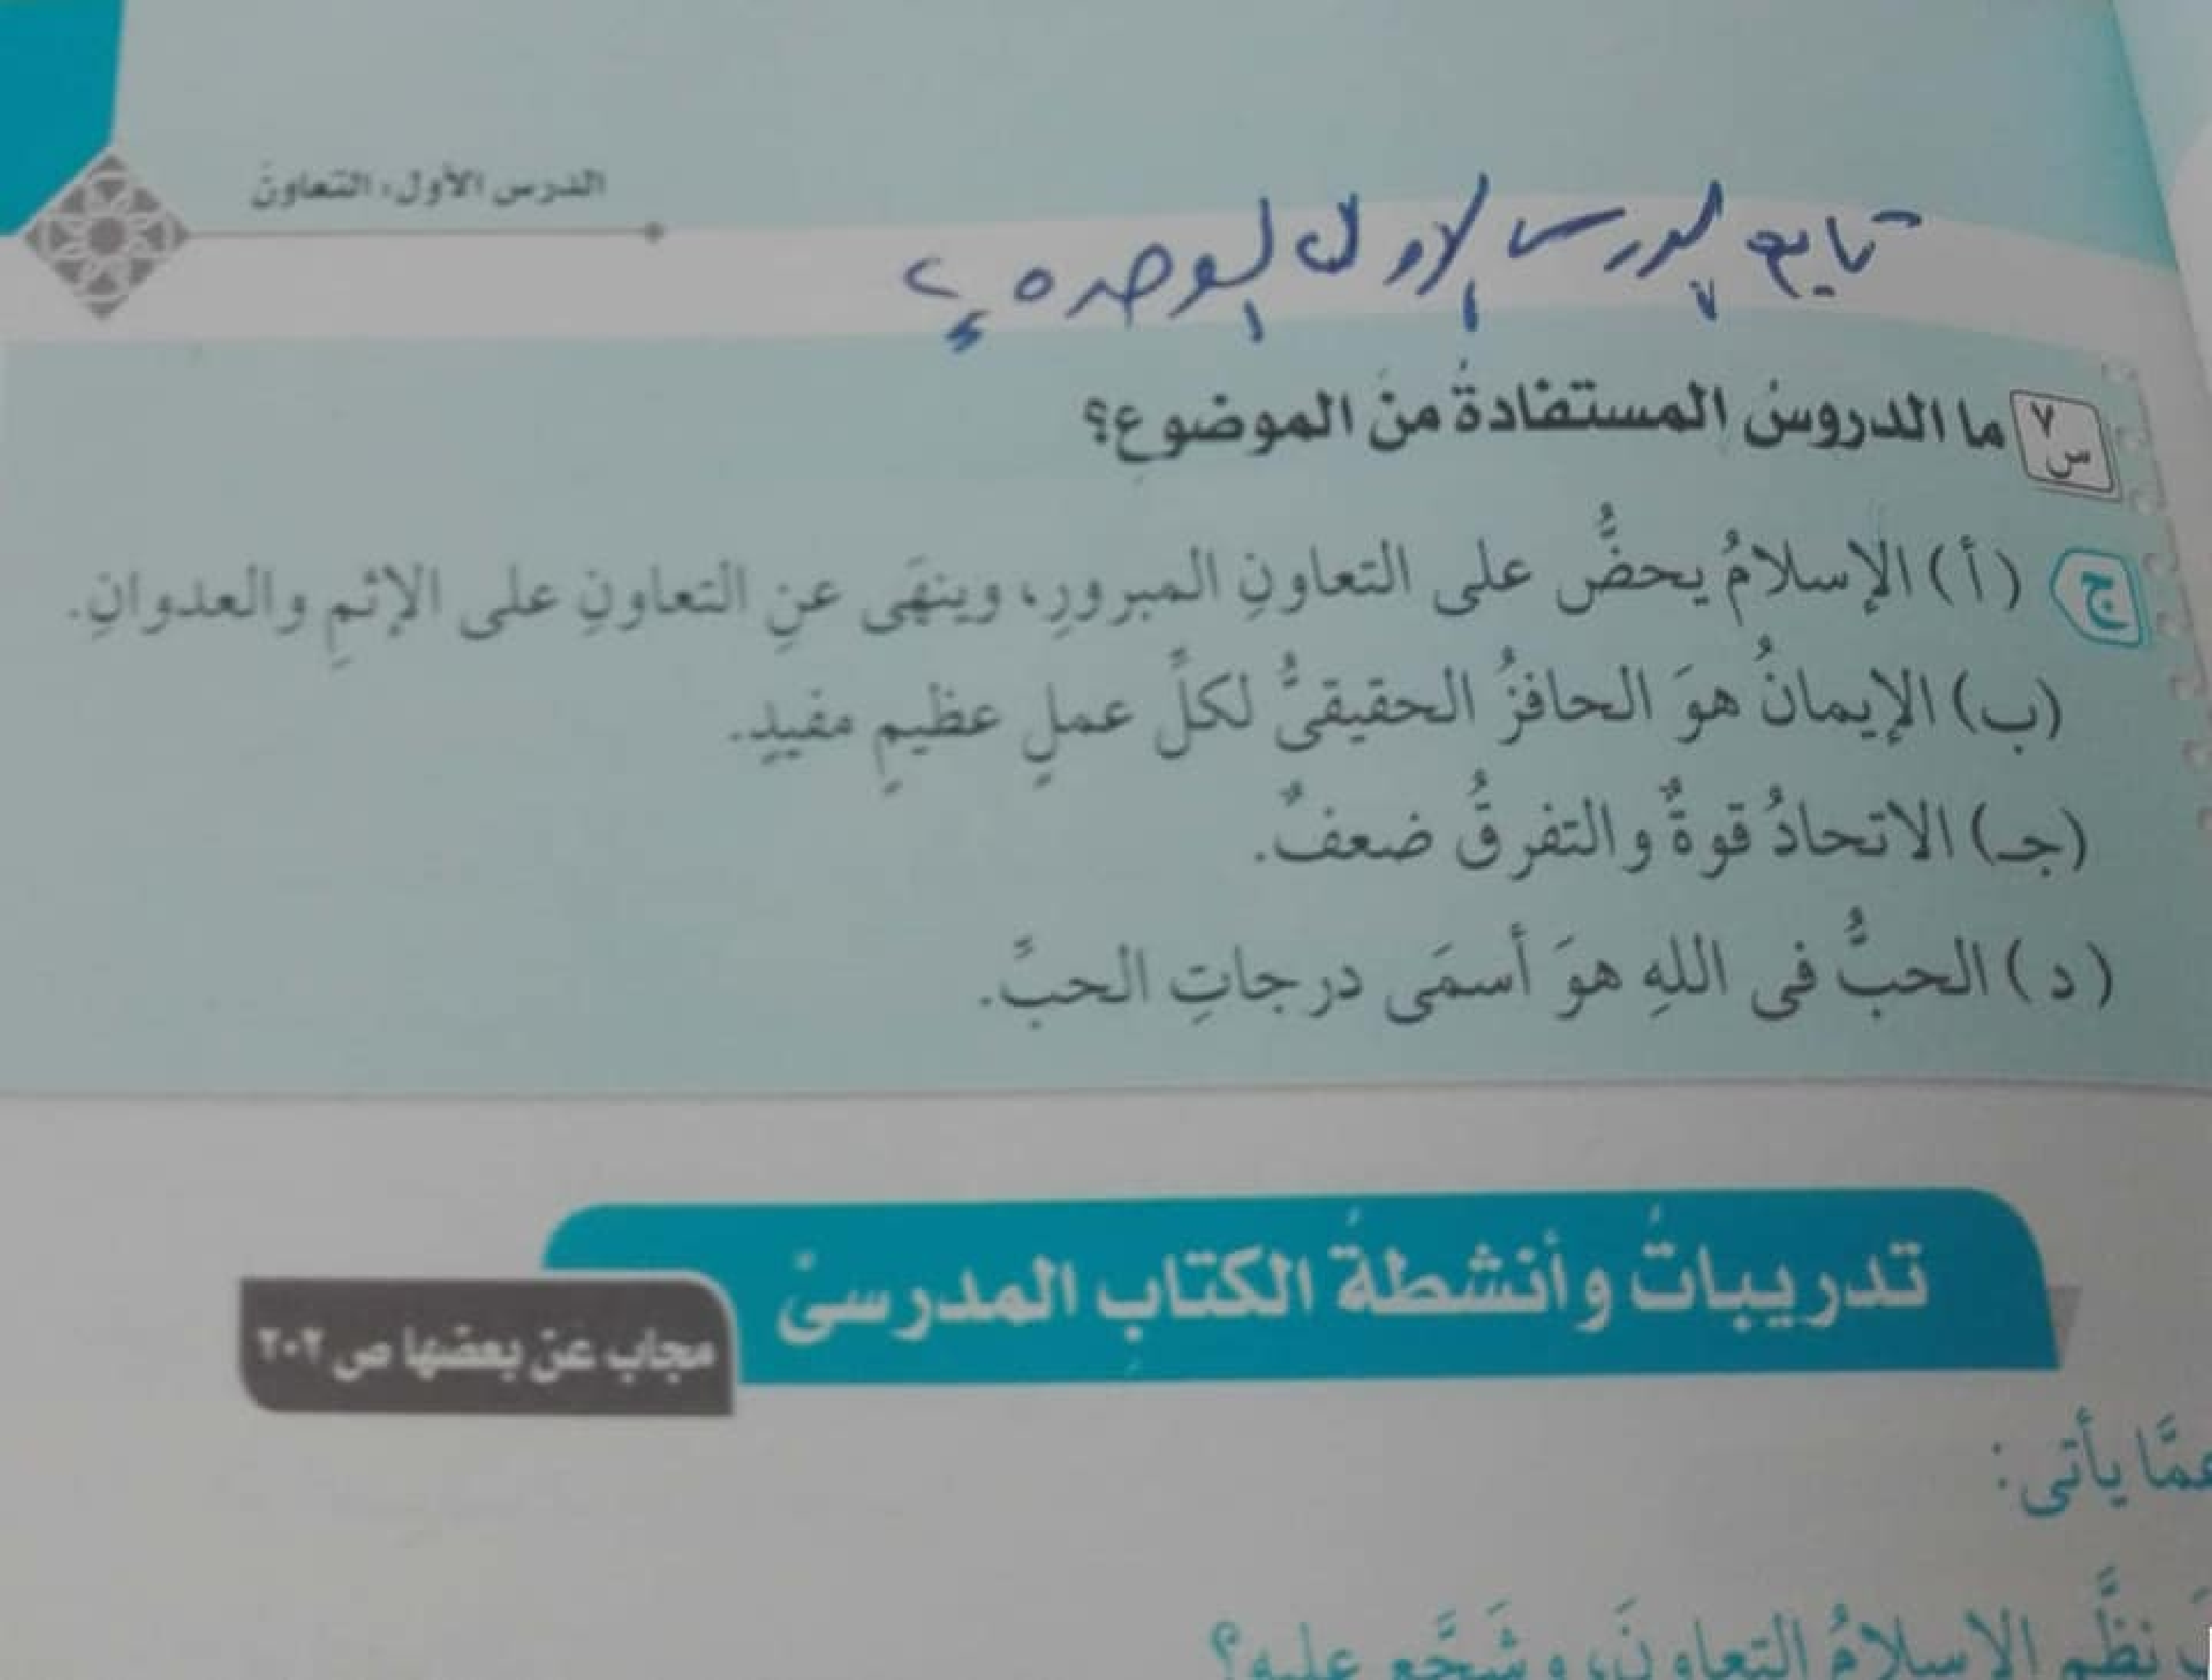 الدرس الأول: التعاون
تابع الدرس الاول الوحده
س٧ ما الدروسُ المستفادةُ منَ الموضوعِ؟
ج (أ) الإسلامُ يحضُّ على التعاونِ المبرورِ، وينهَى عنِ التعاونِ على الإثمِ والعدوانِ.
(ب) الإيمانُ هوَ الحافزُ الحقيقىُّ لكلِّ عملٍ عظيمٍ مفيدٍ.
(جـ) الاتحادُ قوةٌ والتفرقُ ضعفٌ.
(د) الحبُّ فى اللهِ هوَ أسمَى درجاتِ الحبِّ.
تدريباتُ وأنشطةُ الكتابِ المدرسىِّ
مجاب عَنْ بعضها ص ٢٠٢
عمَّا يأتى:
نظَّم الإسلامُ التعاونَ، وشَجَّع عليه؟